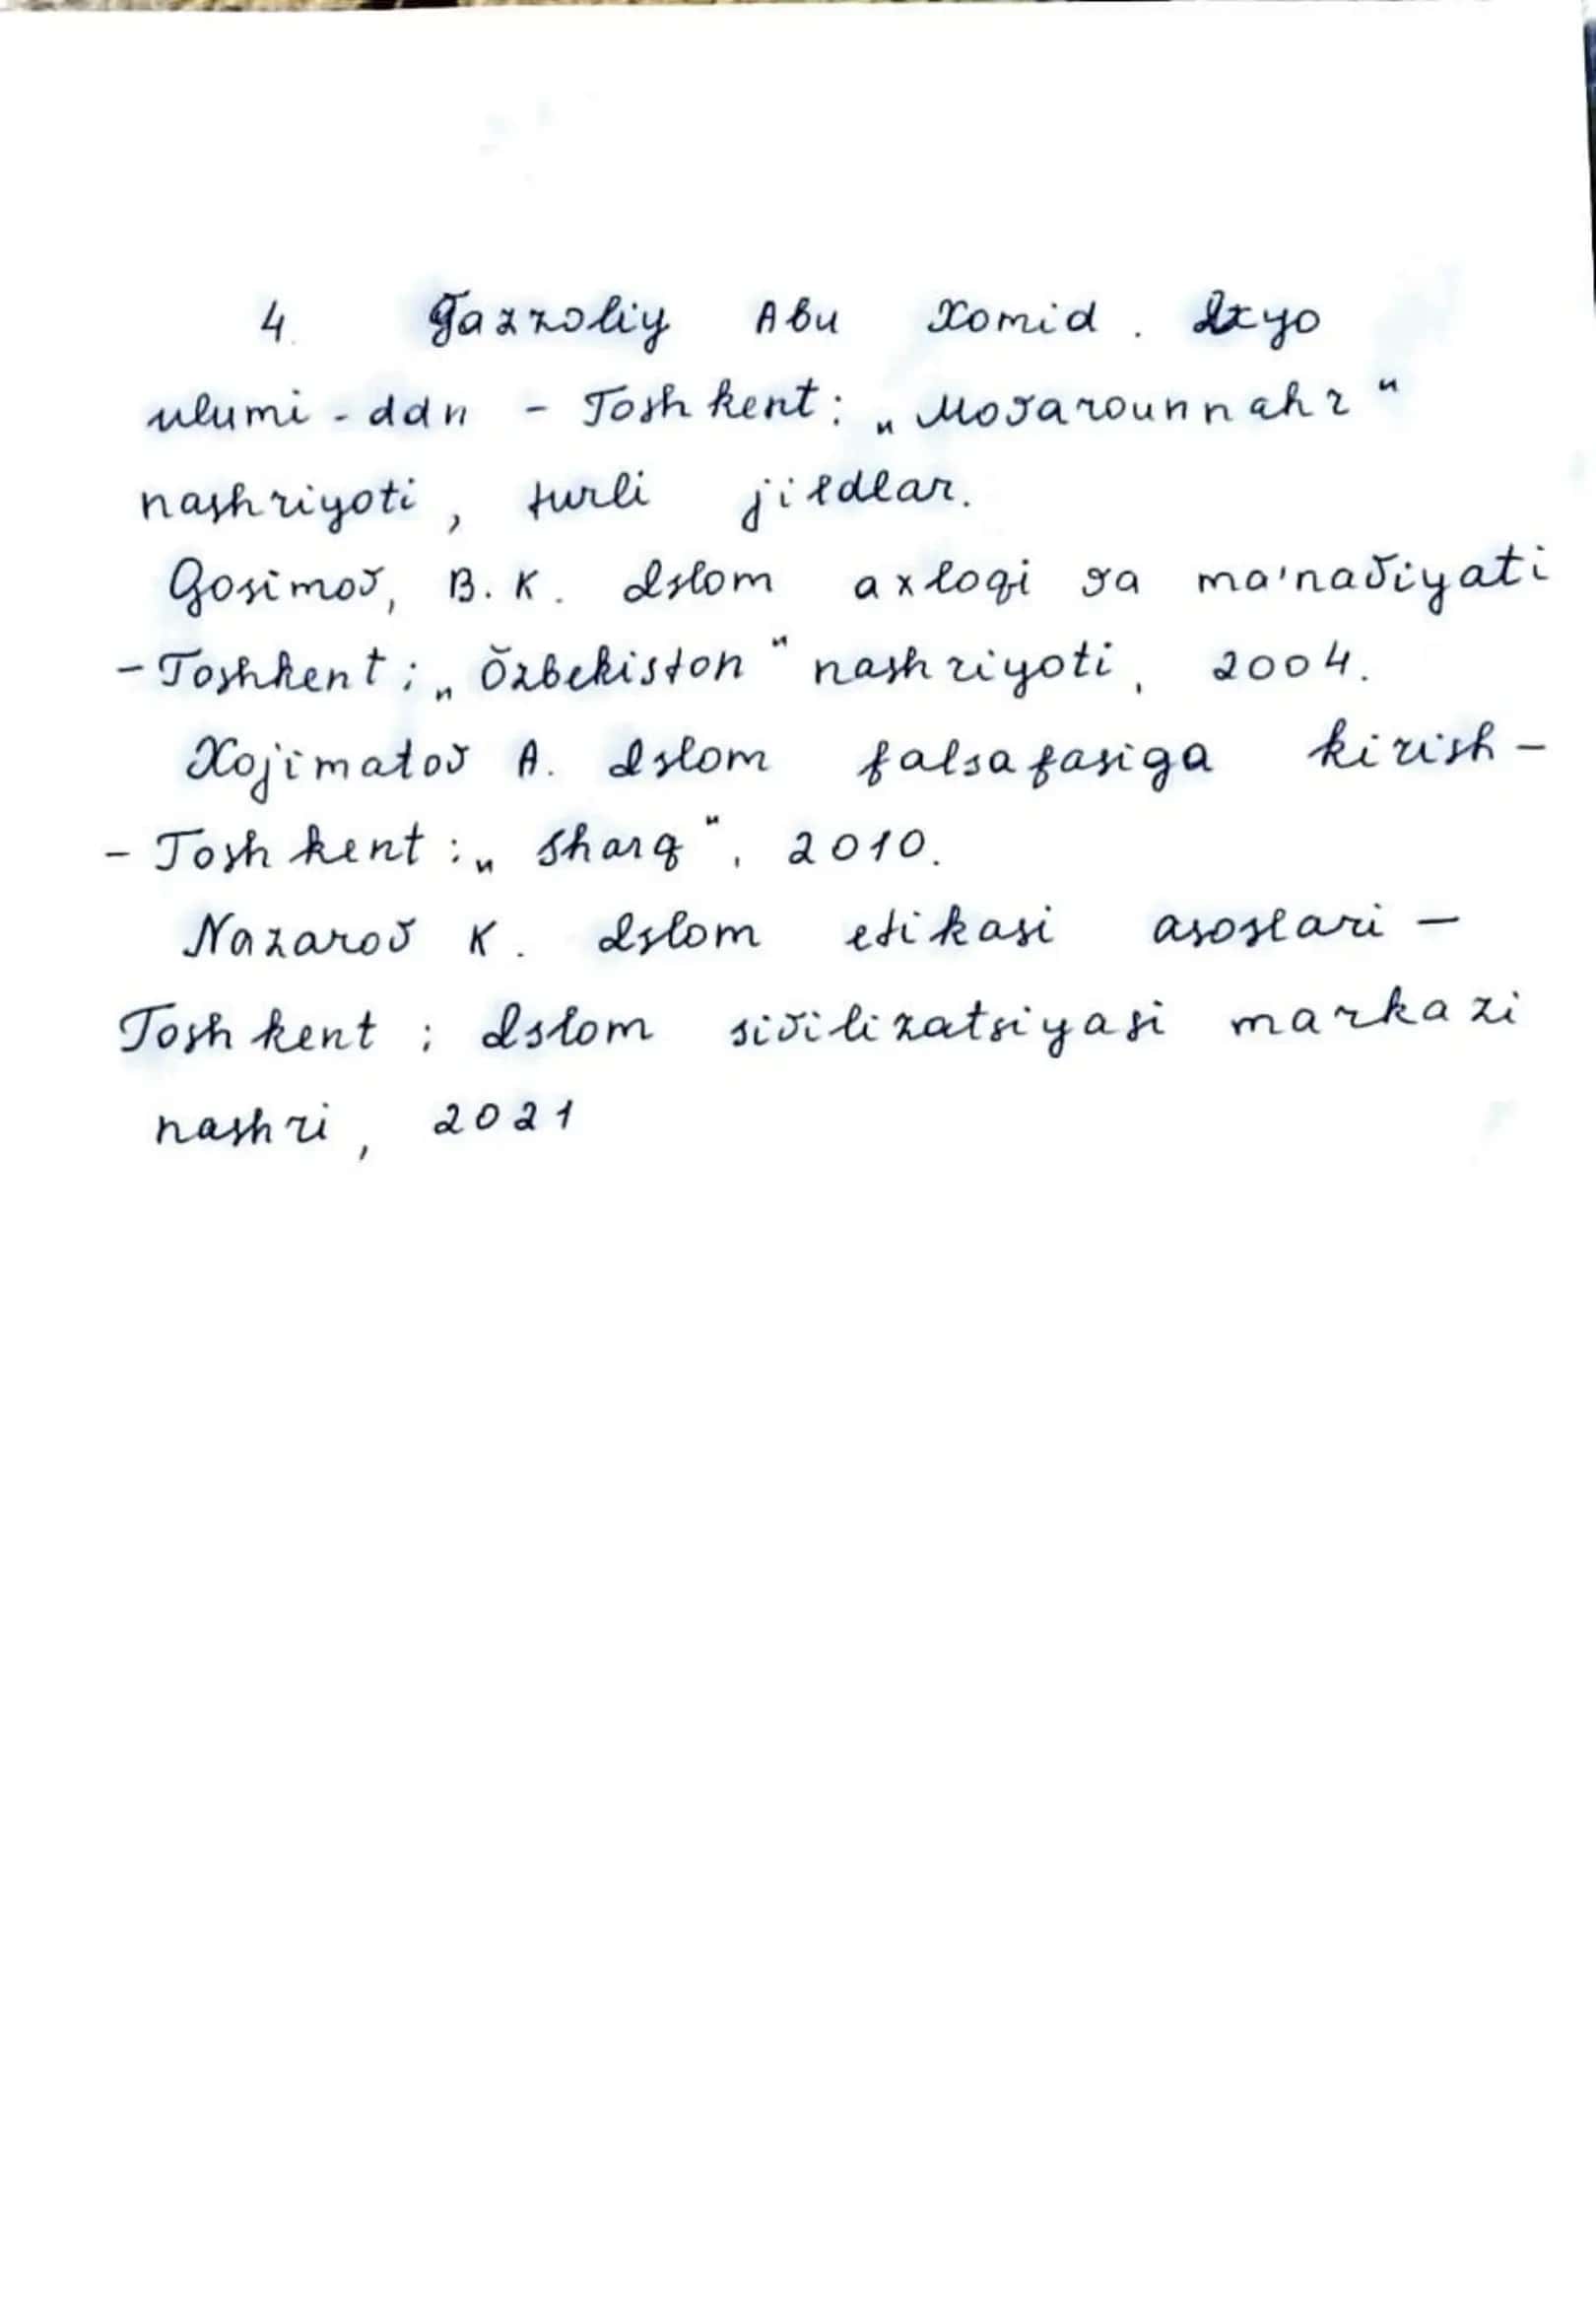 4. Gʻazzoliy Abu Xomid. Ixyo
ulumi-ddn - Toshkent: „Movarounnahr"
nashriyoti, turli jildlar.
Qosimov, B.K. Islom axloqi va ma'naviyati
- Toshkent; „Ŏzbekiston" nashriyoti, 2004.
Xojimatov A. Islom falsafasiga kirish -
- Toshkent: „Sharq", 2010.
Nazarov K. Islom etikasi asoslari -
Toshkent; Islom sivilizatsiyasi markazi
nashri, 2021